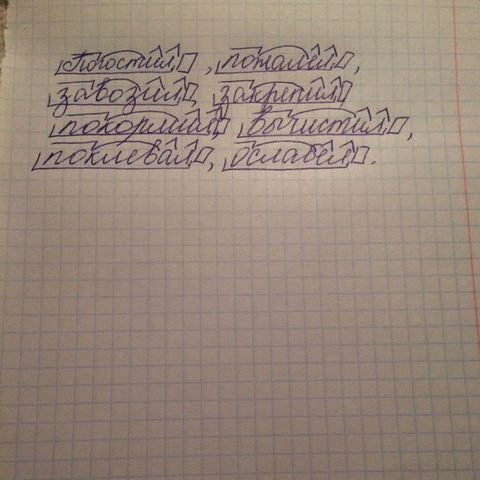 Погостил, пожалел,
завозил, закрепил
покормил, вычистил,
поклевал, ослабел.